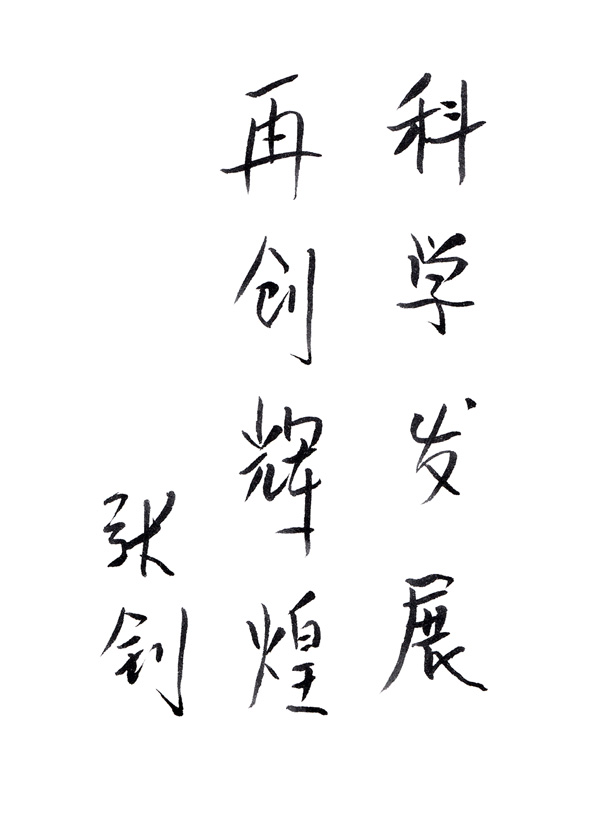 科学发展
再创辉煌
张剑